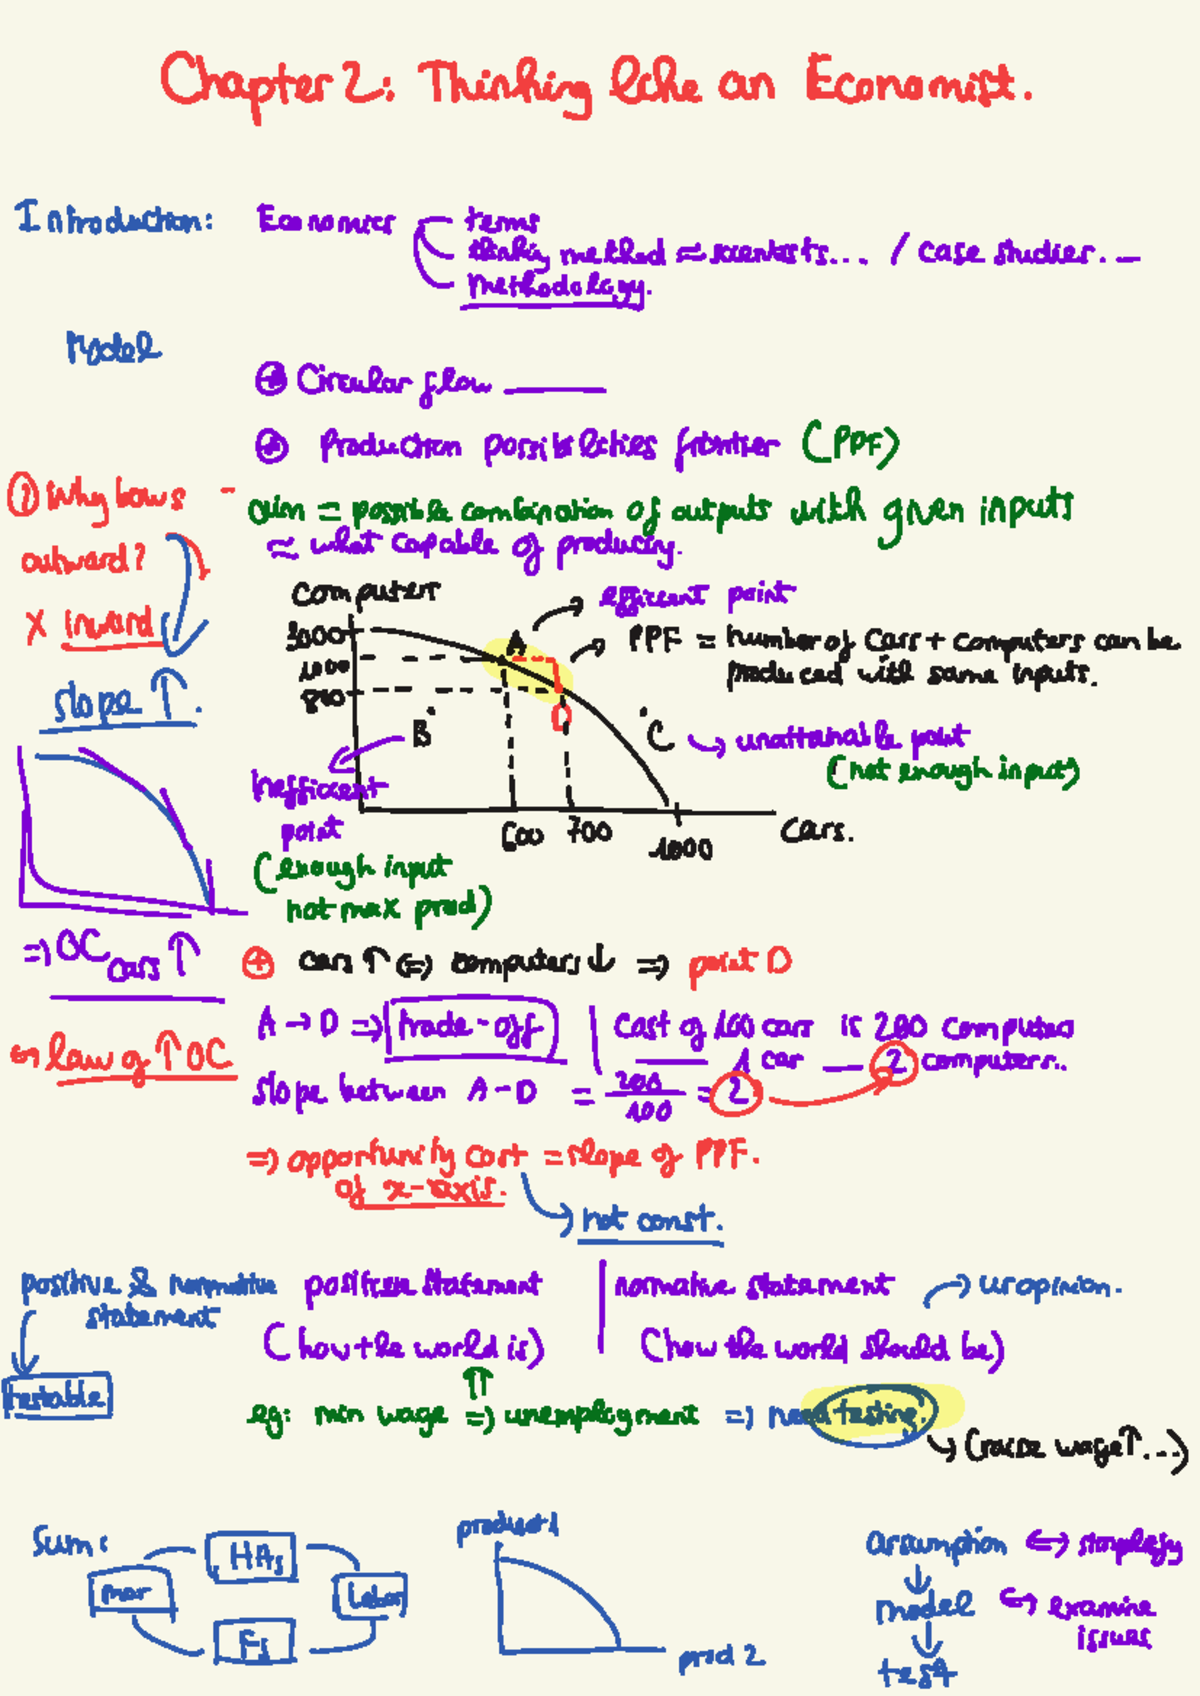 Chapter 2: Thinking like an Economist.
Introduction: Economics
terms
thinking method ≈ scientists... / case studies...
methodology.
Model
Circular flow
Production possibilities frontier (PPF)
? Why bows outward?
X inward
slope ↑.
aim = possible combination of outputs with given inputs
≈ what capable of producing.
computers
efficient point
3000
1000
800
A
PPF = number of cars + computers can be
produced with same inputs.
B
D
C
unattainable point
(not enough input)
Inefficient
point
600 700 1000 cars.
(enough input
not max prod)
=> OC cars ↑
law of ↑ OC
+ cars ↑ <=> computers ↓ => point D
A → D => trade-off | cost of 100 cars is 200 computers
1 car — 2 computers..
slope between A - D = 200/100 = 2
=> opportunity cost = slope of PPF.
of x-axis.
not const.
positive & normative
statement
testable
positive statement | normative statement → ur opinion.
(how the world is) (how the world should be)
eg: min wage => unemployment => need testing.
(raise wage ↑...)
Sum:
HHs
mar
Labor
Fs
product 1
prod 2
assumption <-> simplify
model <-> examine
issues
test